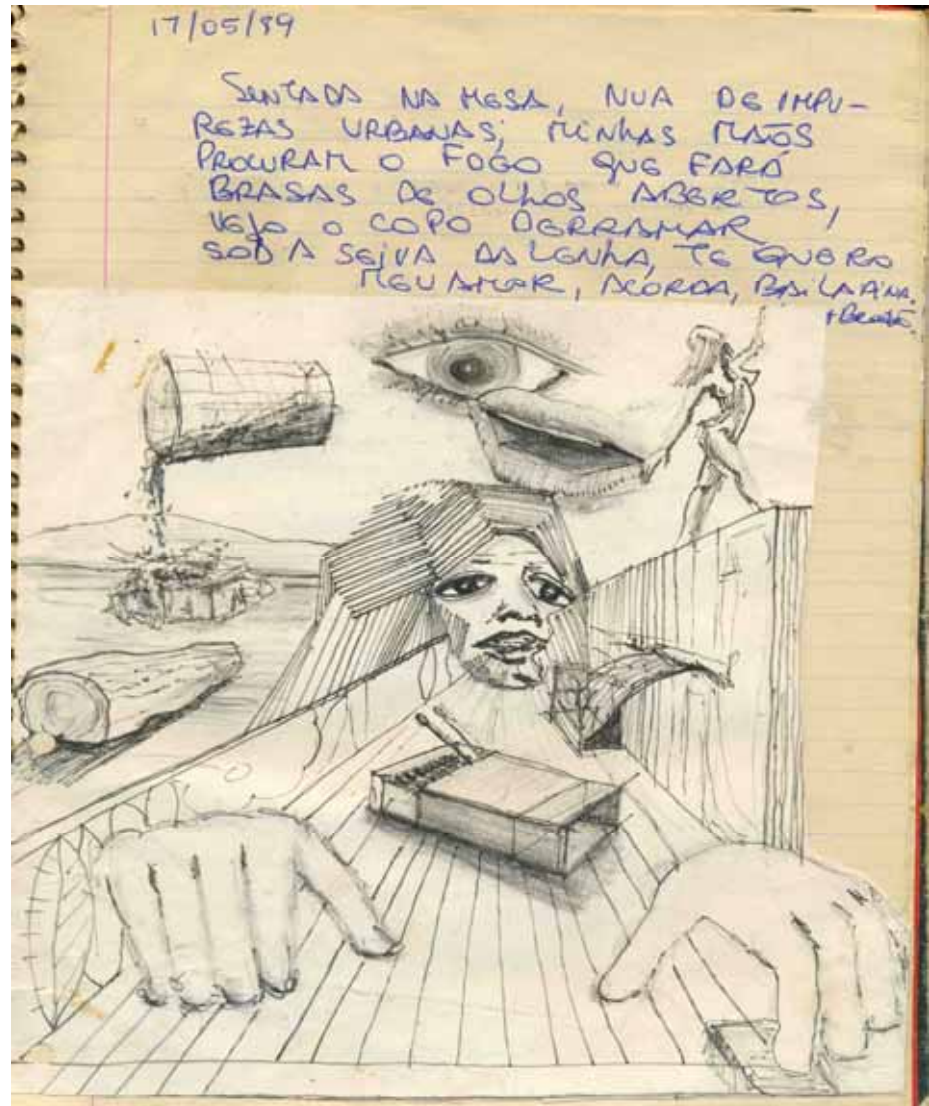 17/05/89
SENTADA NA MESA, NUA DE IMPU-
REZAS URBANAS; MINHAS MAÕS
PROCURAM O FOGO QUE FARÁ
BRASAS DE OLHOS ABERTOS,
VEJO O COPO DERRAMAR
SOB A SEIVA DA LENHA, TE QUERO
MEU AMOR, ACORDA, BAILA ANA.